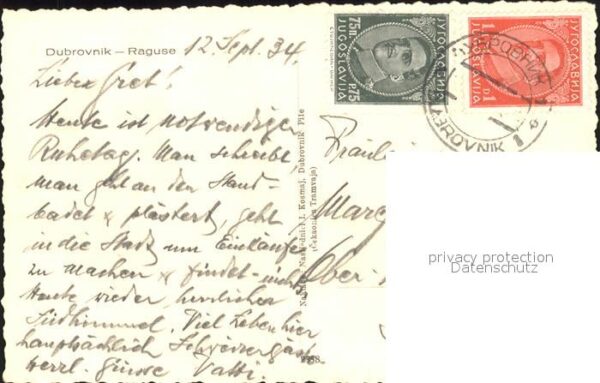 Dubrovnik – Raguse
12. Sept. 34.
Lieber Gret!
Heute ist notwendiger
Ruhetag. Man schreibt,
man geht an den Strand
badet &
geht
in die Stadt um Einkäufe
zu machen & findet nichts
Heute wieder herrlicher
Südhimmel. Viel Leben hier
hauptsächlich
herzl. Grüsse Vatti.
Naklada Naslednici I. Kosmaj, Dubrovnik Pile
(Čekaonica Tramvaja)
75 P. 75
ЈУГОСЛАВИЈА
JUGOSLAVIJA
1 D 1
ЈУГОСЛАВИЈА
JUGOSLAVIJA
ДУБРОВНИК 1
DUBROVNIK 1
Fräulein
Ober-
privacy protection
Datenschutz